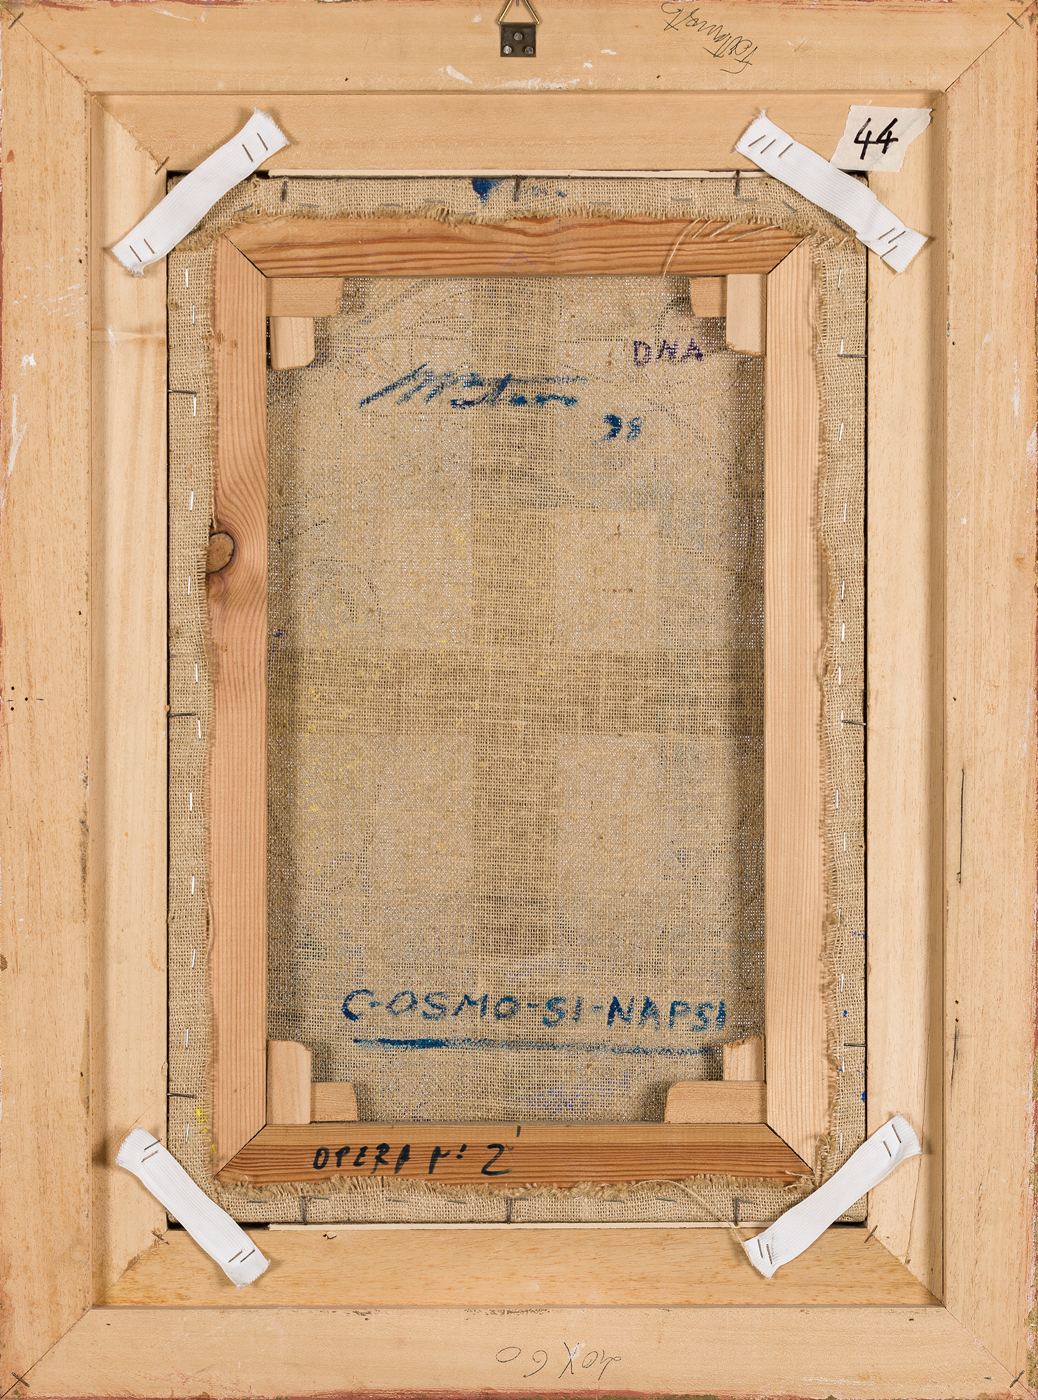 44
DNA
38
C-OSMO-SI-NAPSI
OPERA N: 2
40X60